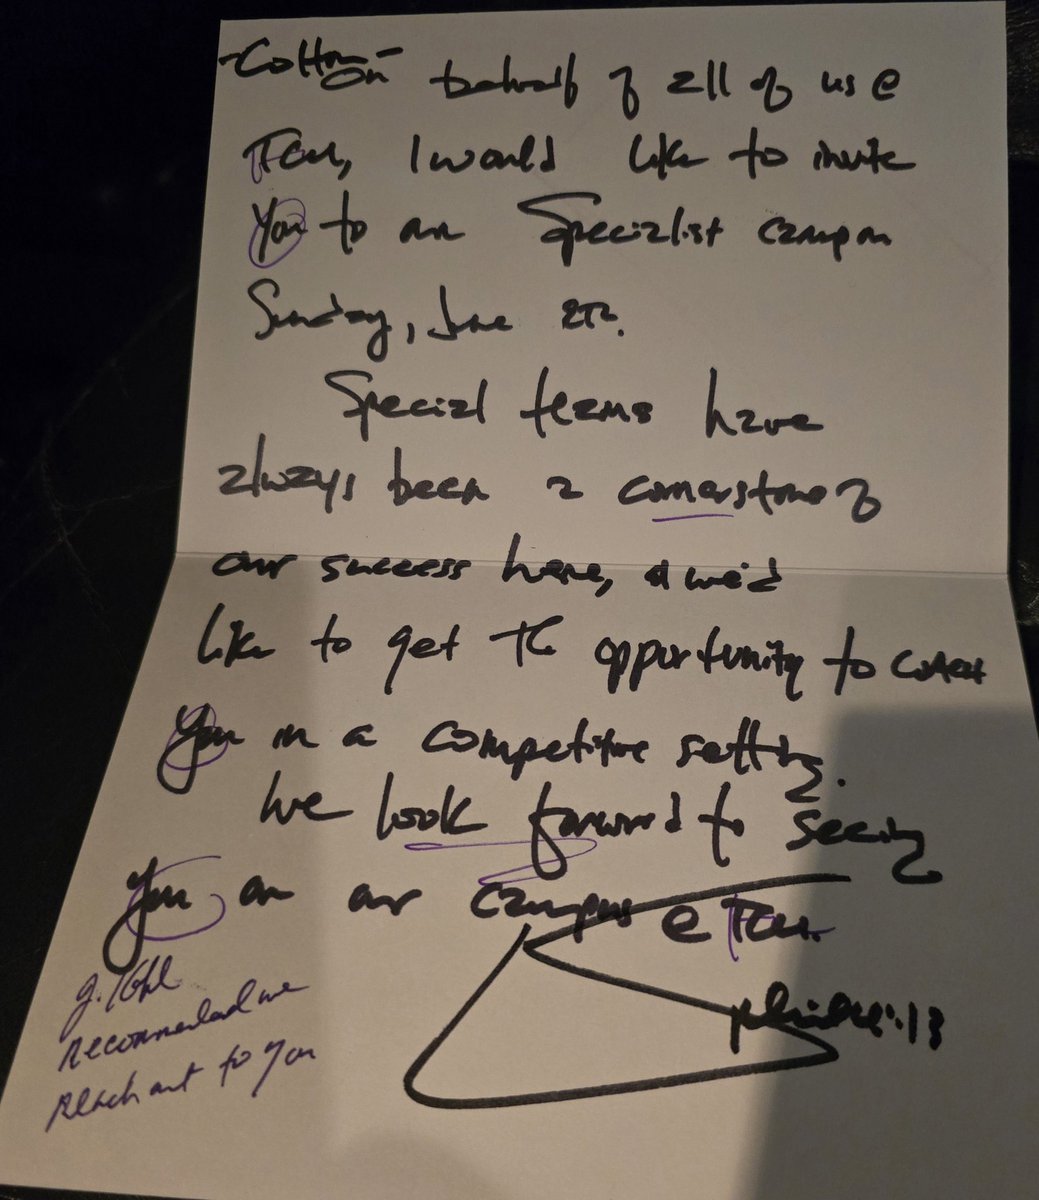 -Colton-
On behalf of all of us @
TCU, I would like to invite
you to our Specialist camp on
Sunday, June
Special teams have
always been a cornerstone of
our success here, & we'd
like to get the opportunity to coach
you in a competitive setting.
We look forward to seeing
you on our campus @ TCU.
recommended we
reach out to you